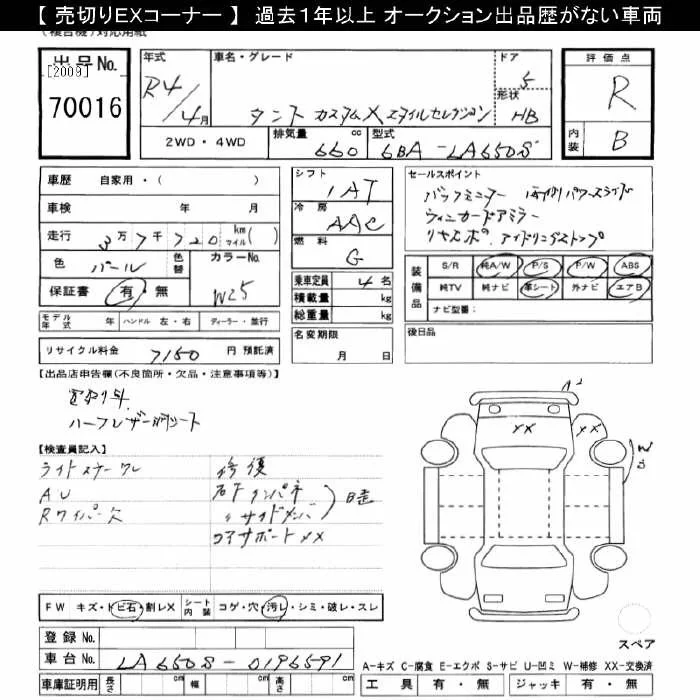 【 売切りEXコーナー 】 過去１年以上 オークション出品歴がない車両
(複合機)対応用紙
出品No.
[2009]
70016
年式
R4/4月
車名・グレード
タント カスタムX スタイルセレクション
ドア
5
形状
HB
評価点
R
内装
B
2WD・4WD
排気量
660 cc
型式
6BA-LA650S
車歴 自家用・( )
車検 年 月
走行 3万7千720 km マイル( )
色 パール
色替
カラーNo.
W25
保証書 有・無
モデル年式 年 ハンドル 左・右 ディーラー・並行
リサイクル料金 7150 円 預託済
シフト
IAT
冷房
AAC
燃料
G
乗車定員 4名
積載量 kg
総重量 kg
名変期限
月 日
セールスポイント
バックモニター 両側パワースライド
ウィンカードアミラー
リヤスポ、アイドリングストップ
装備品
S/R 純A/W P/S P/W ABS
純TV 純ナビ 革シート 外ナビ エアB
ナビ型番:
後日品
【出品店申告欄(不良箇所・欠品・注意事項等)】
買取り車
ハーフレザー調シート
【検査員記入】
ライトスナークレ
AU
Rワイパー欠
修復
右F インパネ
〃 サイドメンバ
コアサポートXX
A2
XX
XX
W
S
FW キズ・トビ石・割レX
シート内装 コゲ・穴・汚レ・シミ・破レ・スレ
登録No.
車台No. LA650S-0196591
車庫証明用 長さ cm 幅 cm 高さ cm
スペア
A-キズ C-腐食 E-エクボ S-サビ U-凹ミ W-補修 XX-交換済
工具 有・無 ジャッキ 有・無